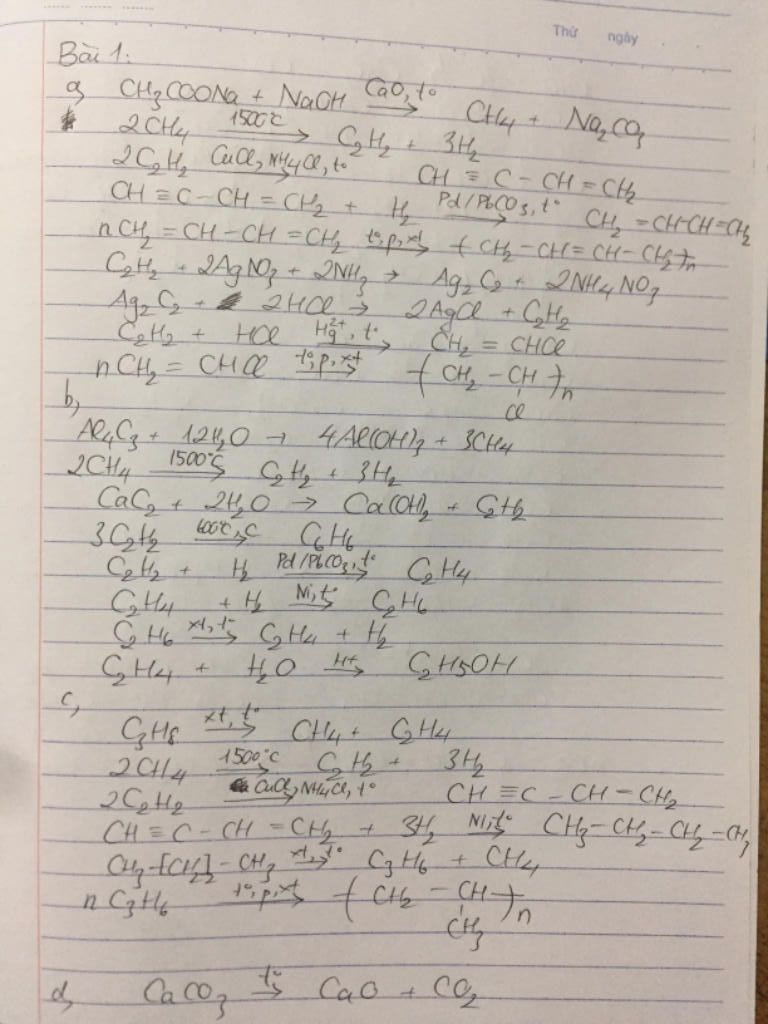 Thứ ngày
Bài 1:
a, CH₃COONa + NaOH \xrightarrow{CaO, t°} CH₄ + Na₂CO₃
2CH₄ \xrightarrow{1500°C} C₂H₂ + 3H₂
2C₂H₂ \xrightarrow{CuCl, NH₄Cl, t°} CH ≡ C - CH = CH₂
CH ≡ C - CH = CH₂ + H₂ \xrightarrow{Pd/PbCO₃, t°} CH₂ = CH-CH = CH₂
nCH₂ = CH - CH = CH₂ \xrightarrow{t°, p, xt} (CH₂ - CH = CH - CH₂)ₙ
C₂H₂ + 2AgNO₃ + 2NH₃ → Ag₂C₂ + 2NH₄NO₃
Ag₂C₂ + 2HCl → 2AgCl + C₂H₂
C₂H₂ + HCl \xrightarrow{Hg²⁺, t°} CH₂ = CHCl
nCH₂ = CHCl \xrightarrow{t°, p, xt} (CH₂ - CH)ₙ
Cl
b,
Al₄C₃ + 12H₂O → 4Al(OH)₃ + 3CH₄
2CH₄ \xrightarrow{1500°C} C₂H₂ + 3H₂
CaC₂ + 2H₂O → Ca(OH)₂ + C₂H₂
3C₂H₂ \xrightarrow{600°C, C} C₆H₆
C₂H₂ + H₂ \xrightarrow{Pd/PbCO₃, t°} C₂H₄
C₂H₄ + H₂ \xrightarrow{Ni, t°} C₂H₆
C₂H₆ \xrightarrow{xt, t°} C₂H₄ + H₂
C₂H₄ + H₂O \xrightarrow{H+} C₂H₅OH
c,
C₃H₈ \xrightarrow{xt, t°} CH₄ + C₂H₄
2CH₄ \xrightarrow{1500°C} C₂H₂ + 3H₂
2C₂H₂ \xrightarrow{CuCl, NH₄Cl, t°} CH ≡ C - CH - CH₂
CH ≡ C - CH = CH₂ + 3H₂ \xrightarrow{Ni, t°} CH₃ - CH₂ - CH₂ - CH₃
CH₃-[CH₂]₂-CH₃ \xrightarrow{xt, t°} C₃H₆ + CH₄
nC₃H₆ \xrightarrow{t°, p, xt} (CH₂ - CH)ₙ
CH₃
d, CaCO₃ \xrightarrow{t°} CaO + CO₂